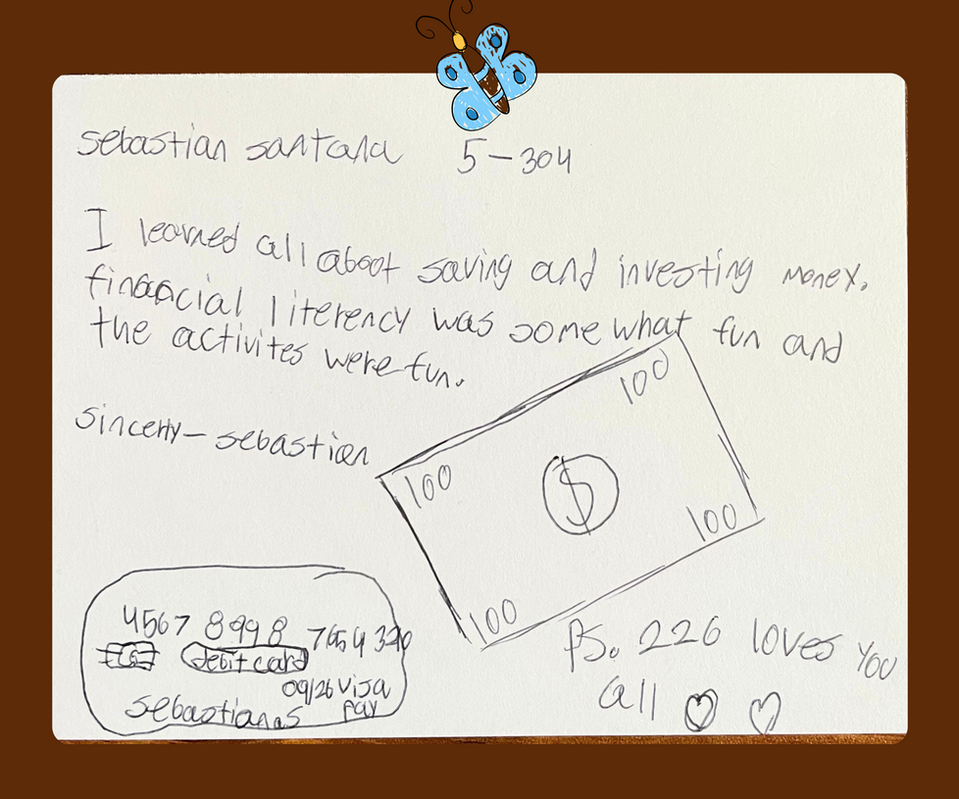 sebastian santana 5-304
I learned all aboot saving and investing money.
financial literency was some what fun and
the activites were fun.
sincerly- sebastian
100
100
$
100
100
4567 8998 7654 3210
debit card
09/26 visa
pay
sebastian as
Ps. 226 loves you
all